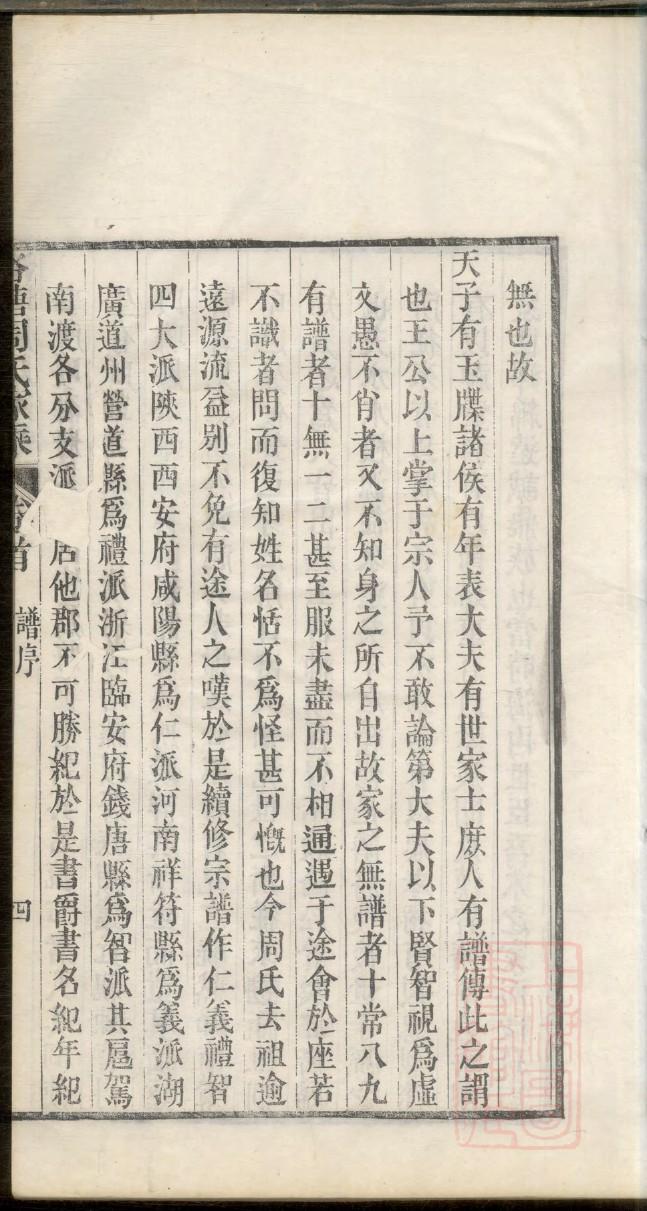 無也故
天子有玉牒諸侯有年表大夫有世家士庶人有譜傳此之謂
也王公以上掌于宗人予不敢論第大夫以下賢智視爲虛
文愚不肖者又不知身之所自出故家之無譜者十常八九
有譜者十無一二甚至服未盡而不相通遇于途會於座若
不識者問而復知姓名恬不爲怪甚可慨也今周氏去祖逾
遠源流益別不免有途人之嘆於是續修宗譜作仁義禮智
四大派陝西西安府咸陽縣爲仁派河南祥符縣爲義派湖
廣道州營道縣爲禮派浙江臨安府錢唐縣爲智派其扈駕
南渡各分支派居他郡不可勝紀於是書爵書名紀年紀
周氏家乘 卷首 譜序 四